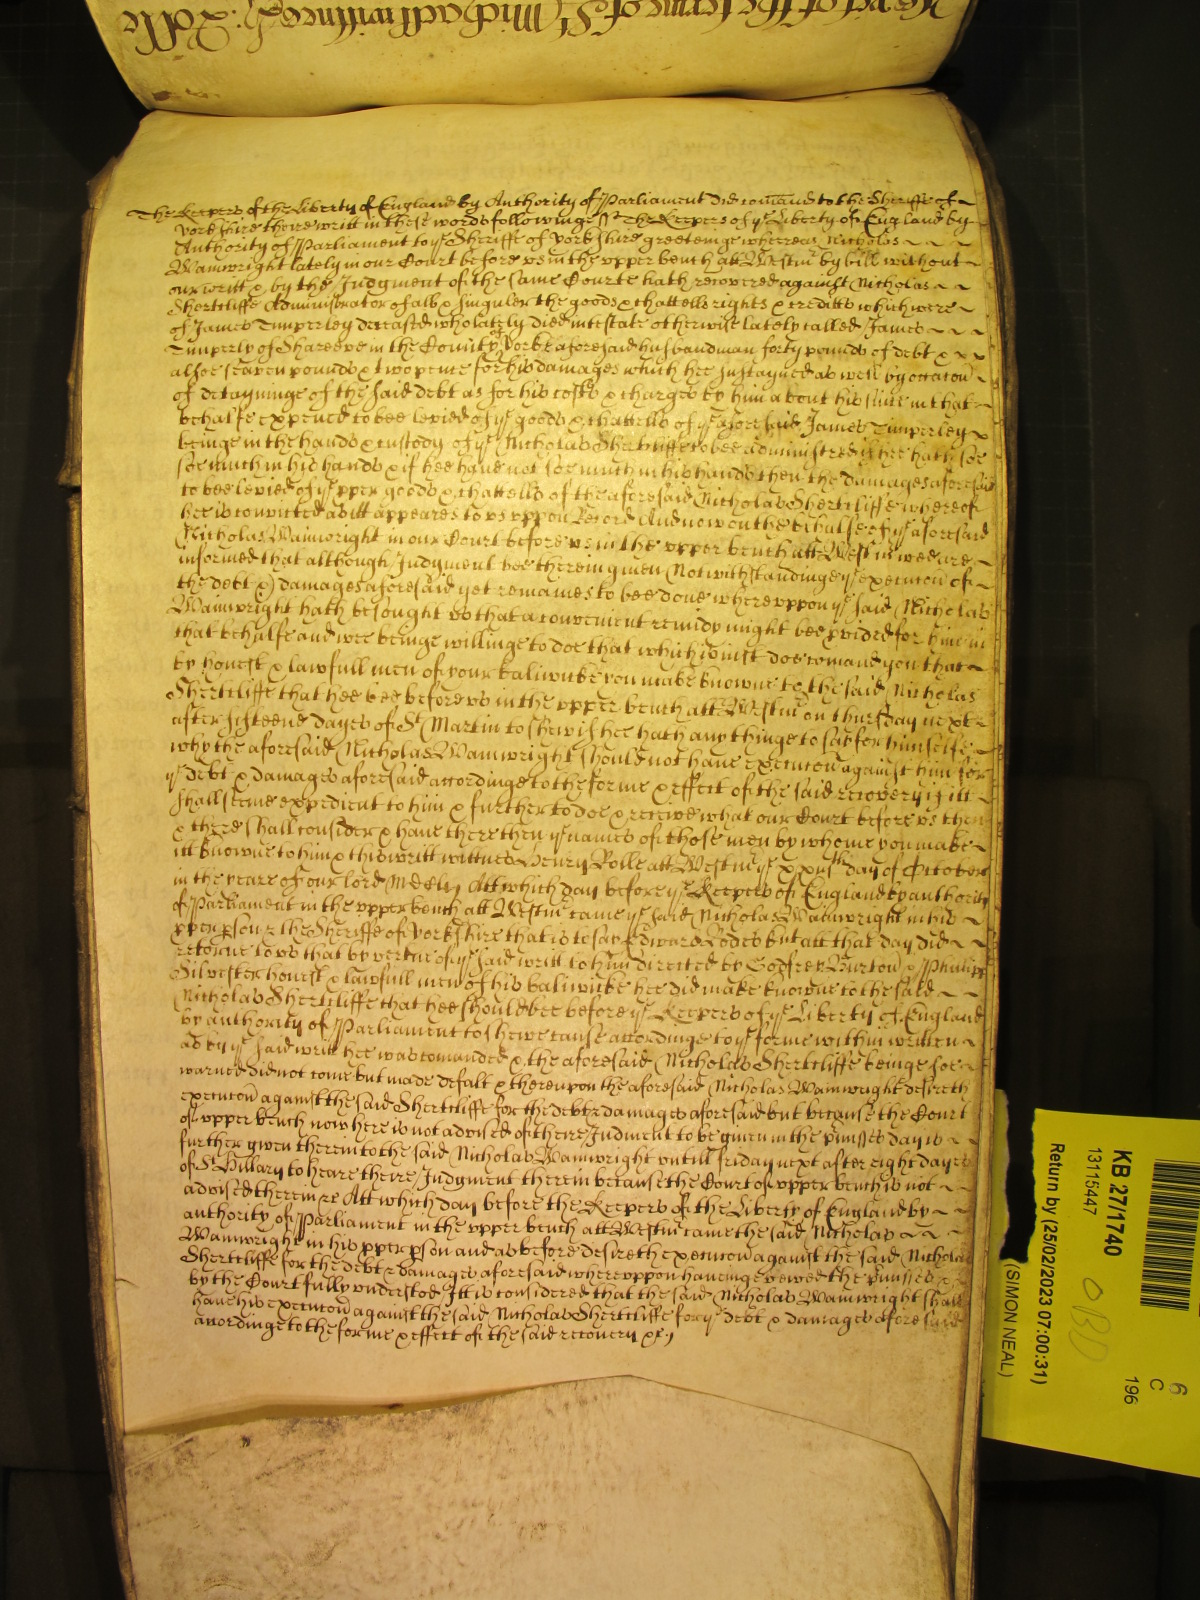 Yet of the terme of St Michaell wittnes H: Rolle
The Keepers of the Liberty of England by Authority of Parliament did comand to the Sheriffe of
Yorkshire theire writt in these words followinge ss The Keepers of ye Liberty of England by
Authority of Parliament to ye Sheriffe of Yorkshire greeteinge whereas Nicholas
Wainwright lately in our Court before us in the upper bench att Westm by bill without
our writt & by the Judgment of the same Courte hath recovered against Nicholas
Shertcliffe Administrator of all & singuler the goods & chattells rights & creditts which were
of James Timperley deceased who lately died intestate otherwise lately called James
Timperly of in the County of Yorke aforesaid husbandman forty pounds of debt & x x
alsoe seaven pounds & two pence for his damages which hee sustayned as well by occacon
of detayninge of the said debt as for his costs & charges by him about his suite in that
behalfe expened to bee levied of ye goods & chattells of ye aforesaid James Timperley
beinge in the hands & custody of ye Nicholas Shertcliffe to bee administred if hee hath soe
soe much in his hands & if hee have not soe much in his hands then the damages aforesaid
to bee levied of ye pper goods & chattells of the aforesaid Nicholas Shertcliffe whereof
hee is convicted as itt appeares to us uppon Record And now on the behalfe of ye aforesaid
Nicholas Wainwright in our Court before us in the upper bench att Westm wee are
informed that although Judgment bee therein given Notwithstandinge ye execucon of
the debt & damages aforesaid yet remaines to bee done whereuppon ye said Nicholas
Wainwright hath besought us that a convenient remidy might bee pvided for him in
that behalfe and wee beinge willinge to doe that which is just doe comand you that
by honest & lawfull men of your baliwicke you make knowne to the said Nicholas
Shertcliffe that hee bee before us in the upper bench att Westm on thursday next
after fifteene dayes of St Martin to shew if hee hath any thinge to say for himselfe
why the aforesaid Nicholas Wainwright should not have execucon against him for
ye debt & damages aforesaid accordinge to the forme & effect of the said recovery if itt
shall seeme expedient to him & further to doe & receive what our Court before us then
& there shall consider & have there then ye names of those men by whome you make
itt knowne to him & this writt wittnes Henry Rolle att Westm ye day of October
in the yeare of our lord Att which day before ye Keepers of England by authority
of Parliament in the upper bench att Westm came ye said Nicholas Wainwright in his
pper pson & the Sheriffe of Yorkshire that is to say Edward Rodes but att that day did
retorne to us that by vertue of ye said writt to him directed by Godfrey Burton & Phillipp
Silvester honest & lawfull men of his baliwicke hee did make knowne to the said
Nicholas Shertcliffe that hee should bee before ye Keepers of ye Liberty of England
by authority of Parliament to shewe cause accordinge to ye forme within written
as by ye said writt hee was comanded & the aforesaid Nicholas Shertcliffe beinge soe
warned did not come but made defalt & thereupon the aforesaid Nicholas Wainwright desireth
execucon against the said Shertcliffe for the debt & damages aforesaid but because the Court
of upper bench now here is not advised of theire Judment to be given in the pmisses day is
further given therein to the said Nicholas Wainwright untill friday next after eight dayes
of St Hillary to heare theire Judgment therein because the Court of upper bench is not
advised therein &c Att which day before the Keepers of the Liberty of England by
authority of Parliament in the upper bench att Westm came the said Nicholas
Wainwright in his pper pson and as before desireth execucon against the said Nicholas
Shertcliffe for the debt & damages aforesaid whereuppon haveinge vewed the pmisses &
by the Court fully understod Itt is considered that the said Nicholas Wainwright shall
have his execucon against the said Nicholas Shertcliffe for ye debt & damages aforesaid
accordinge to the forme & effect of the said recovery &c
KB 27/1740
13115447
Return by (25/02/2023 07:00:31)
(SIMON NEAL)
OBD
6
C
196